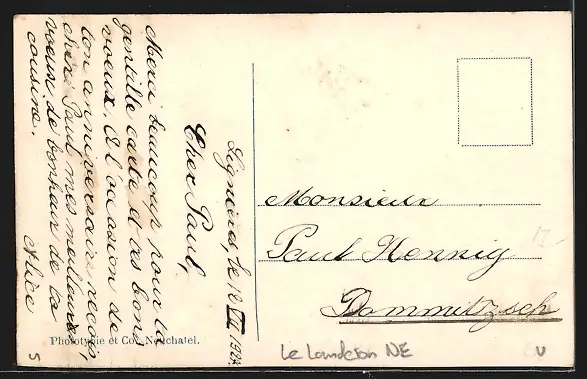 Lignières, le 12 VII 1924
Cher Paul,
Merci beaucoup pour la
gentille carte et tes bons
voeux. A l'occasion de
ton anniversaire, reçois,
cher Paul mes meilleurs
voeux de bonheur de ta
cousine.
Alice
Monsieur
Paul Hennig
Dommitzsch
Phototypie et Co., Neuchatel.
Le Landeron NE